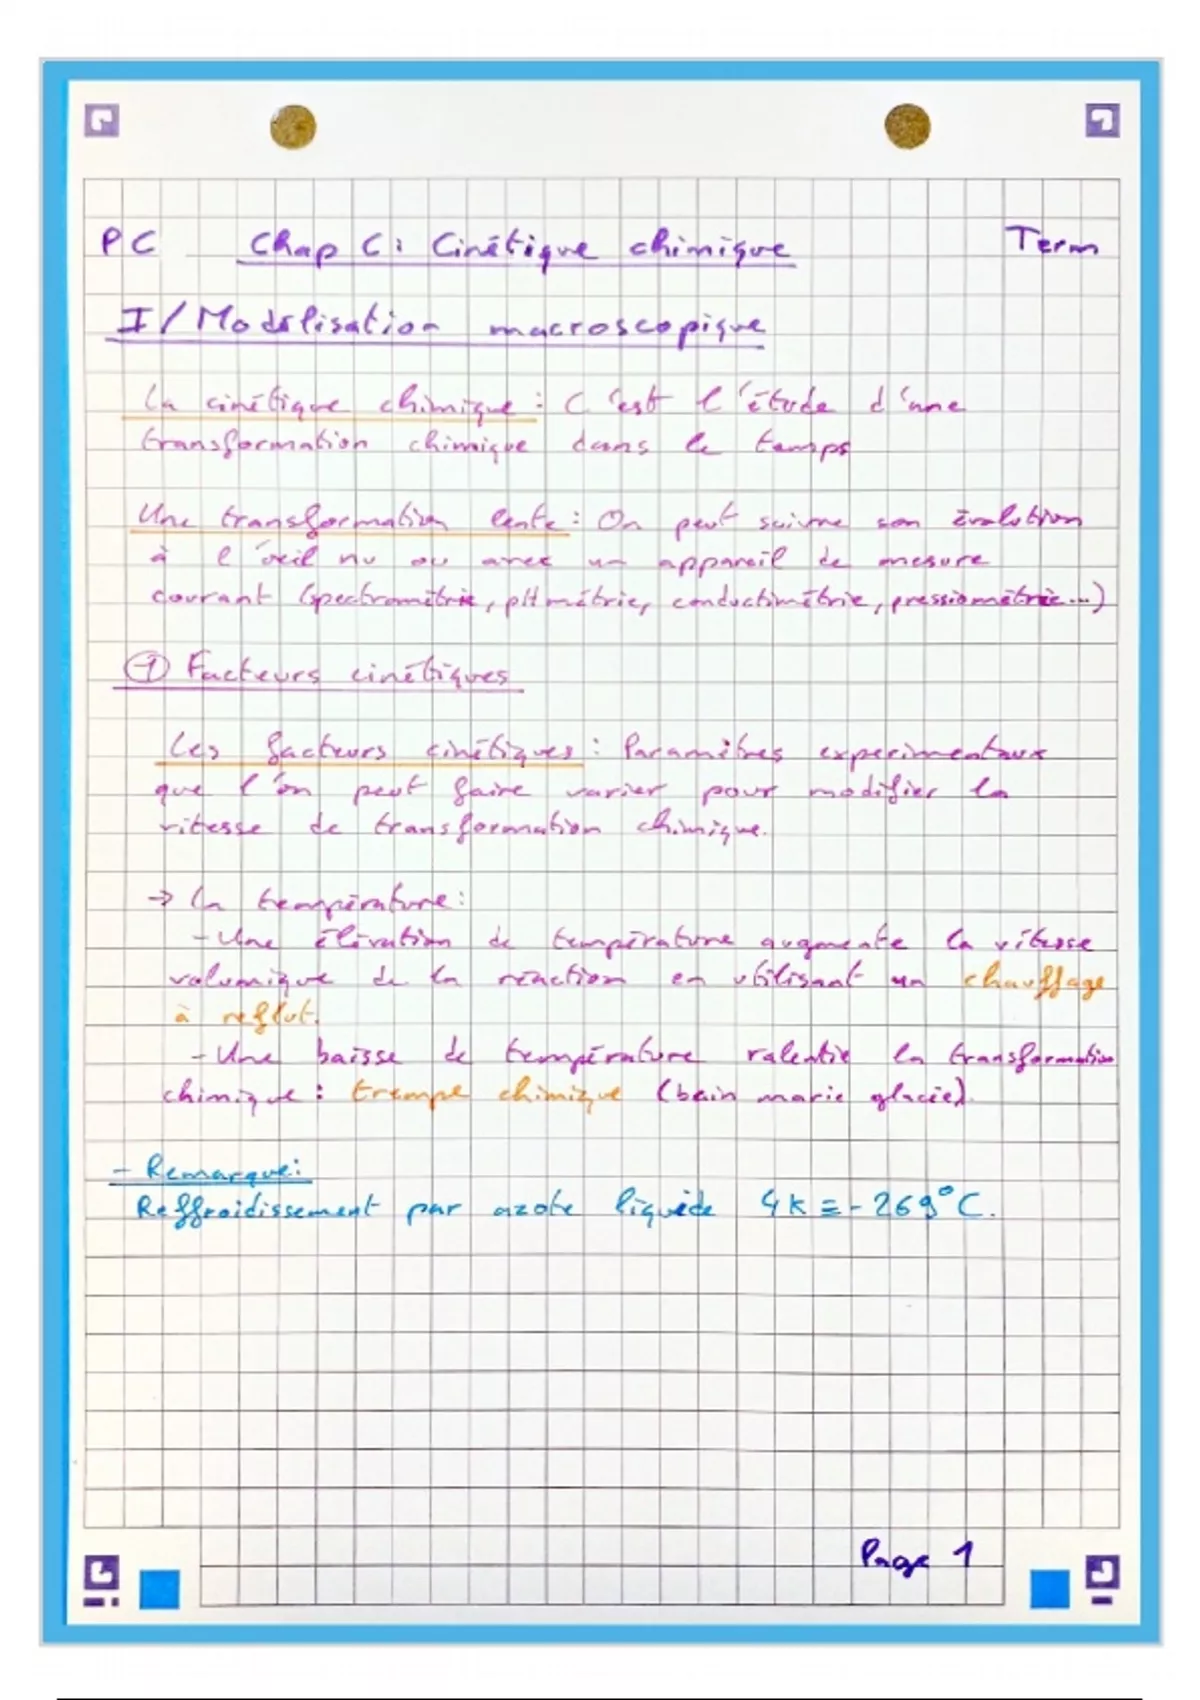 PC Chap C: Cinétique chimique Term
I/ Modélisation macroscopique
La cinétique chimique : C'est l'étude d'une
transformation chimique dans le temps
Une transformation lente : On peut suivre son évolution
à l'œil nu ou avec un appareil de mesure
courant (spectrométrie, pH métrie, conductimétrie, pressiométrie...)
① Facteurs cinétiques
Les facteurs cinétiques : Paramètres experimentaux
que l'on peut faire varier pour modifier la
vitesse de transformation chimique.
→ La température :
- Une élévation de température augmente la vitesse
volumique de la réaction en utilisant un chauffage
à reflut.
- Une baisse de température ralentie la transformation
chimique : trempe chimique (bain marie glacié)
- Remarque:
Reffroidissement par azote liquide 4K ≡ -269°C.
Page 1